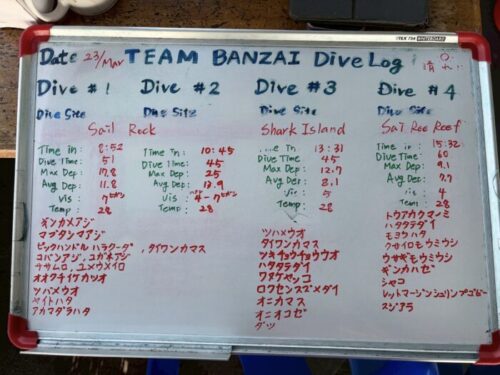 Date 23/Mar TEAM BANZAI Dive Log
Dive #1
Dive Site
Sail Rock
Time in: 8:52
Dive Time: 51
Max Dep: 17.8
Avg Dep: 11.8
Vis:
Temp: 28
ギンカメアジ
マブタシマアジ
ピックハンドル バラクーダ
コバンアジ、コガネアジ
ササムロ、ユメウメイロ
オオクチイケカツオ
ツバメウオ
ヤイトハタ
アカマダラハタ
Dive #2
Dive Site
Time in: 10:45
Dive Time: 45
Max Dep: 25
Avg Dep: 13.9
Vis
Temp: 28
タイワンカマス
Dive #3
Dive Site
Shark Island
13:31
Dive Time: 45
Max Dep: 12.7
Avg Dep: 8.1
Vis: 5
Temp: 28
ツバメウオ
タイワンカマス
ツキチョウチョウウオ
ハタタテダイ
ワヌケヤッコ
ロクセンスズメダイ
オニカマス
オニオコゼ
ダツ
Dive #4
Dive Site
Sai Ree Reef
Time in: 15:32
Dive Time: 60
Max Dep: 9.1
Avg Dep: 7.7
Vis: 4
Temp: 28
トウアカクマノミ
ハタタテダイ
モヨウハタ
クサイロモウミウシ
ウサギモウミウシ
ギンガハゼ
シャコ
レッドマージンシュリンプゴビー
スジアラ